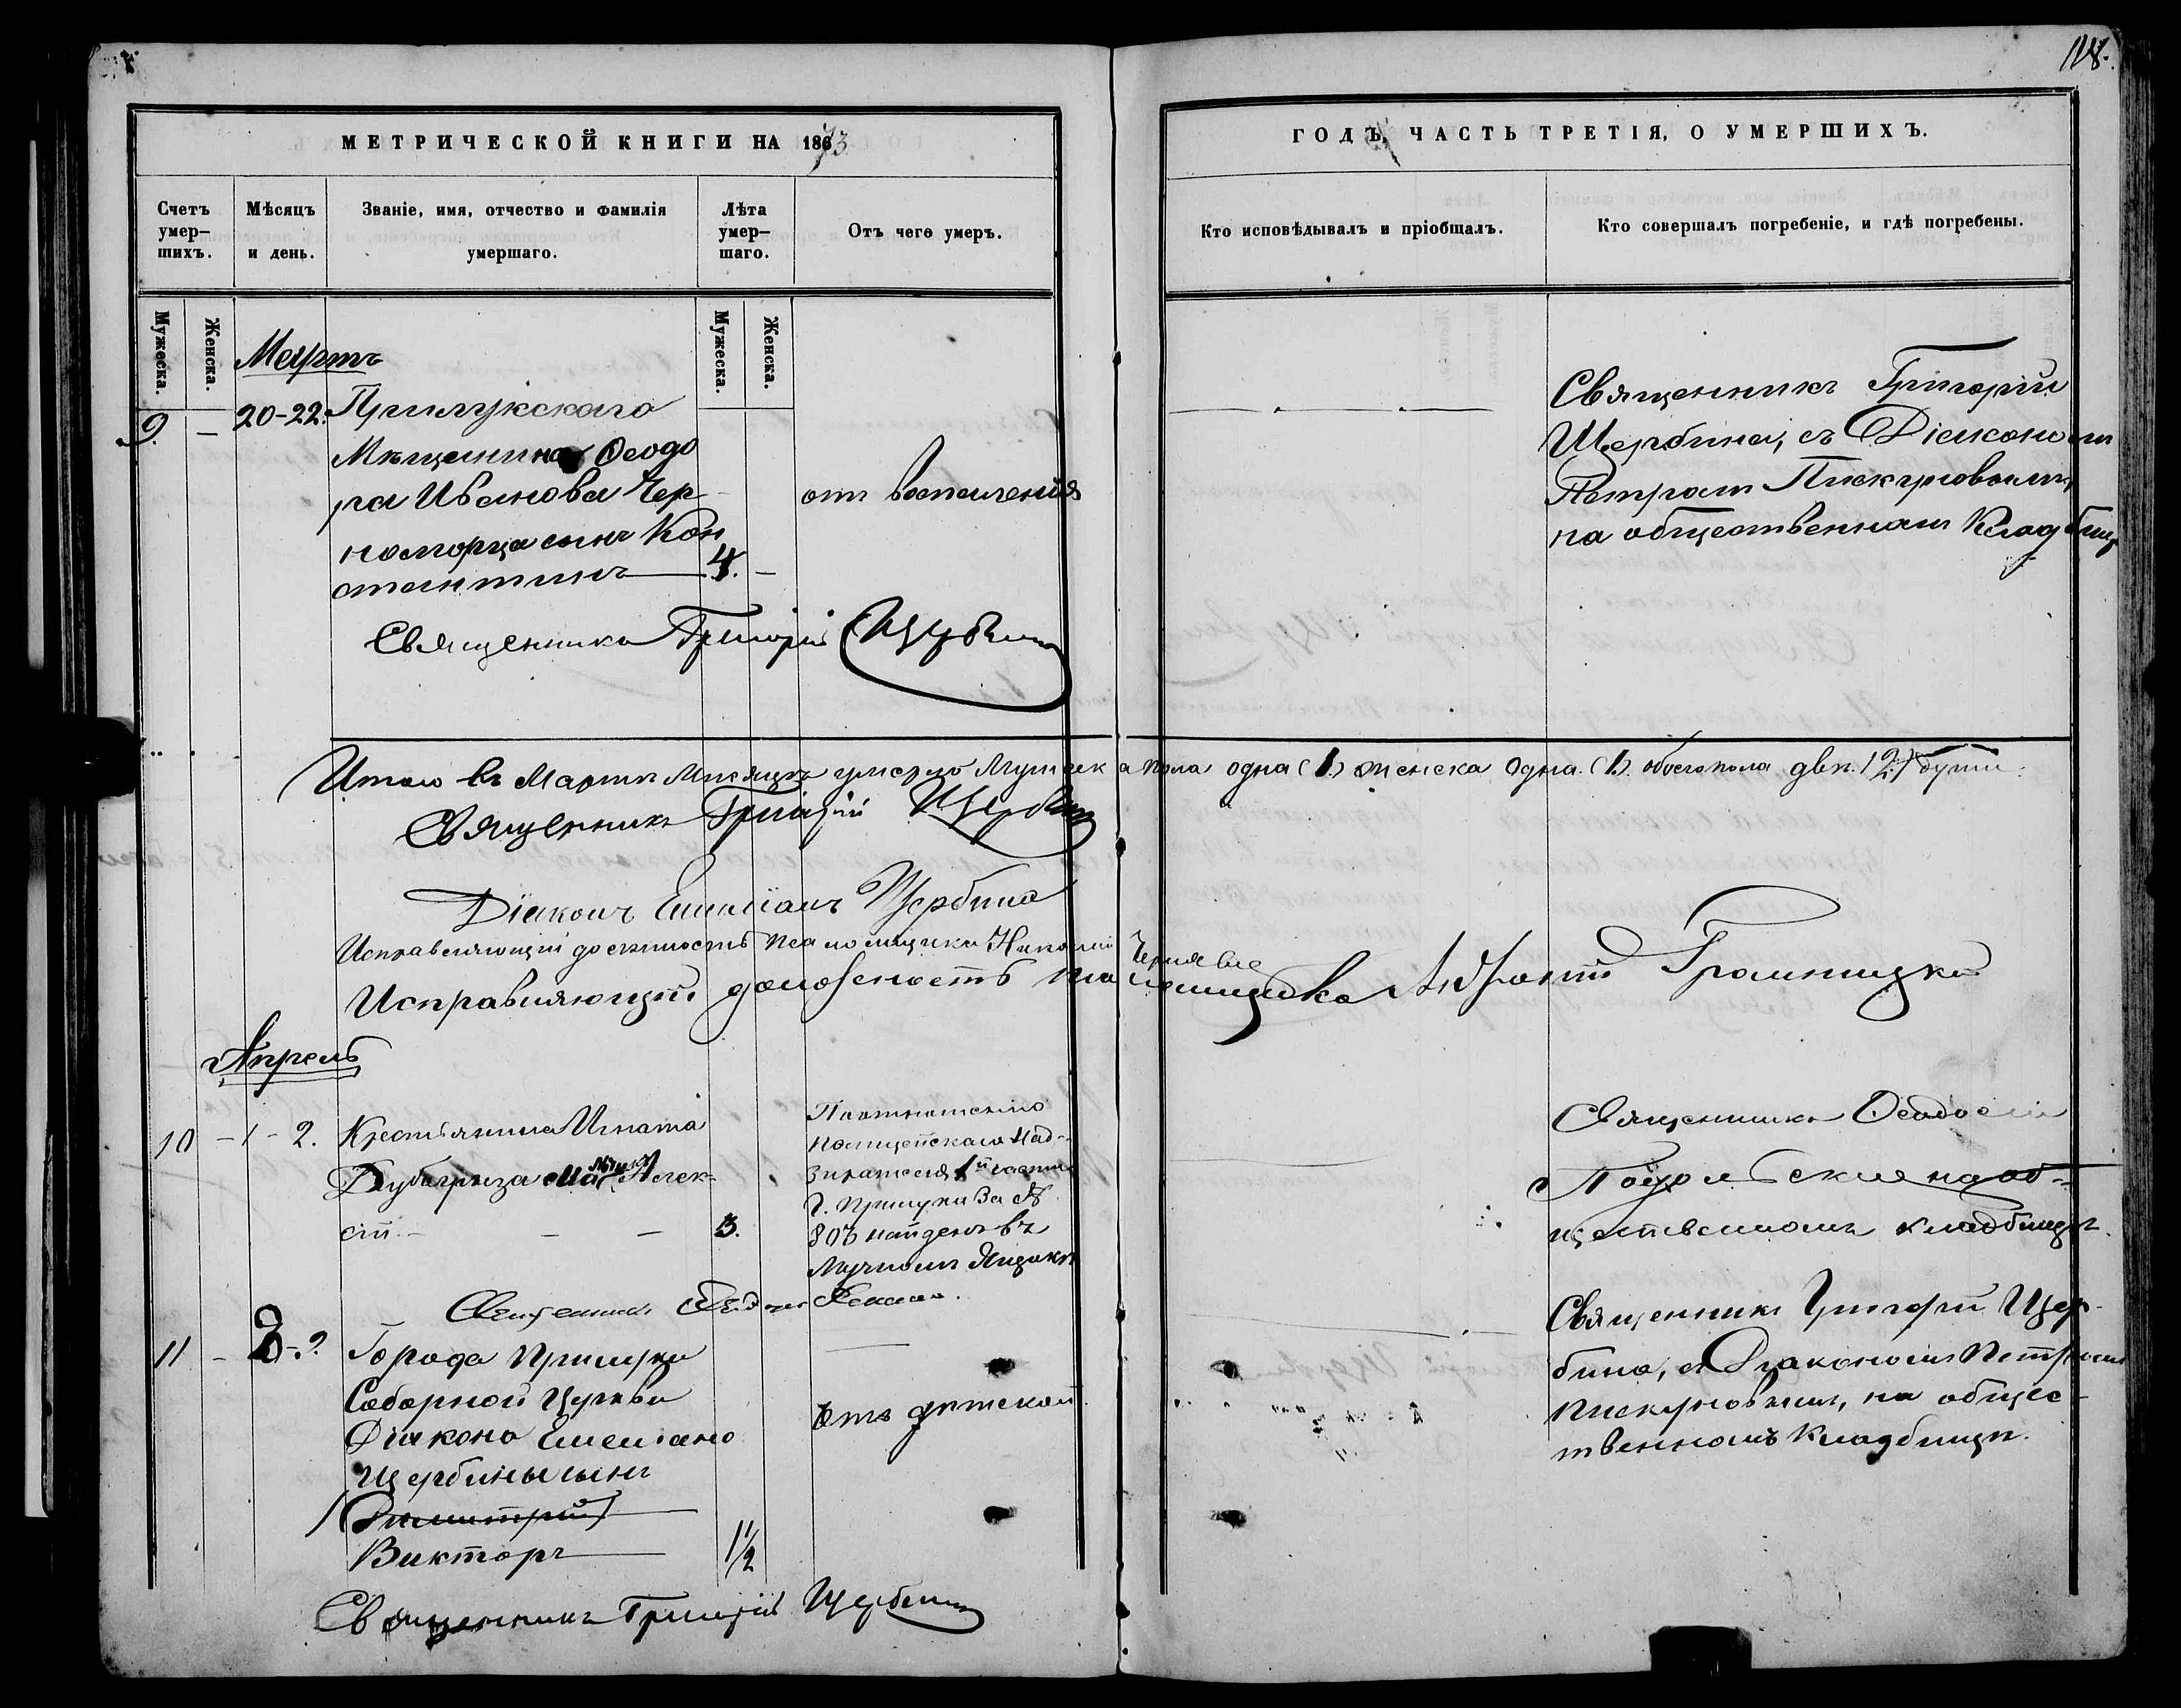 118.
МЕТРИЧЕСКОЙ КНИГИ НА 1873
ГОДЪ, ЧАСТЬ ТРЕТІЯ, О УМЕРШИХЪ.
Счетъ умер-шихъ.
Мѣсяцъ и день.
Званіе, имя, отчество и фамилія умершаго.
Лѣта умер-шаго.
Отъ чего умеръ.
Кто исповѣдывалъ и пріобщалъ.
Кто совершалъ погребеніе, и гдѣ погребены.
Мужеска.
Женска.
Мужеска.
Женска.
Мартъ
9. — 20-22. Прилукскаго
Мѣщанина Ѳеодо
ра Иванова Чер
номорца сынъ Кон
стантинъ — 4. —
отъ воспаленія
Священникъ Григорій
Щербина, съ Діакономъ
Петромъ Пискуновымъ,
на общественномъ Кладбищѣ
Священникъ Григорій Щербина
Итого въ Мартѣ Мѣсяцѣ умерло Мужеска пола одна (1.) женска одна (1.) обоего пола двѣ (2.) души.
Священникъ Григорій Щербина
Діаконъ Емиліанъ Щербина
Исправляющій должность псаломщика Николай
Исправляющій должность псаломщика
Апрель
10 - 1 - 2. Крестьянина Игната
Дубогрыза Алек-
сій — — 3.
Полицейскаго Над-
зирателя 1й части
г. Прилуки За №
803 найденъ въ
Мучномъ Ящикѣ
Священникъ Ѳеодосій
на об-
щественномъ кладбищѣ.
Священникъ
11 - 2. Города Прилуки
Соборной Церкви
Діакона Емеліана
Щербины сынъ
(Димитрій)
Викторъ — 1 1/2
Отъ дѣтской
Священникъ Григорій Щер-
бина, съ Діакономъ Петромъ
Пискуновымъ, на общес-
твенномъ Кладбищѣ.
Священникъ Григорій Щербина